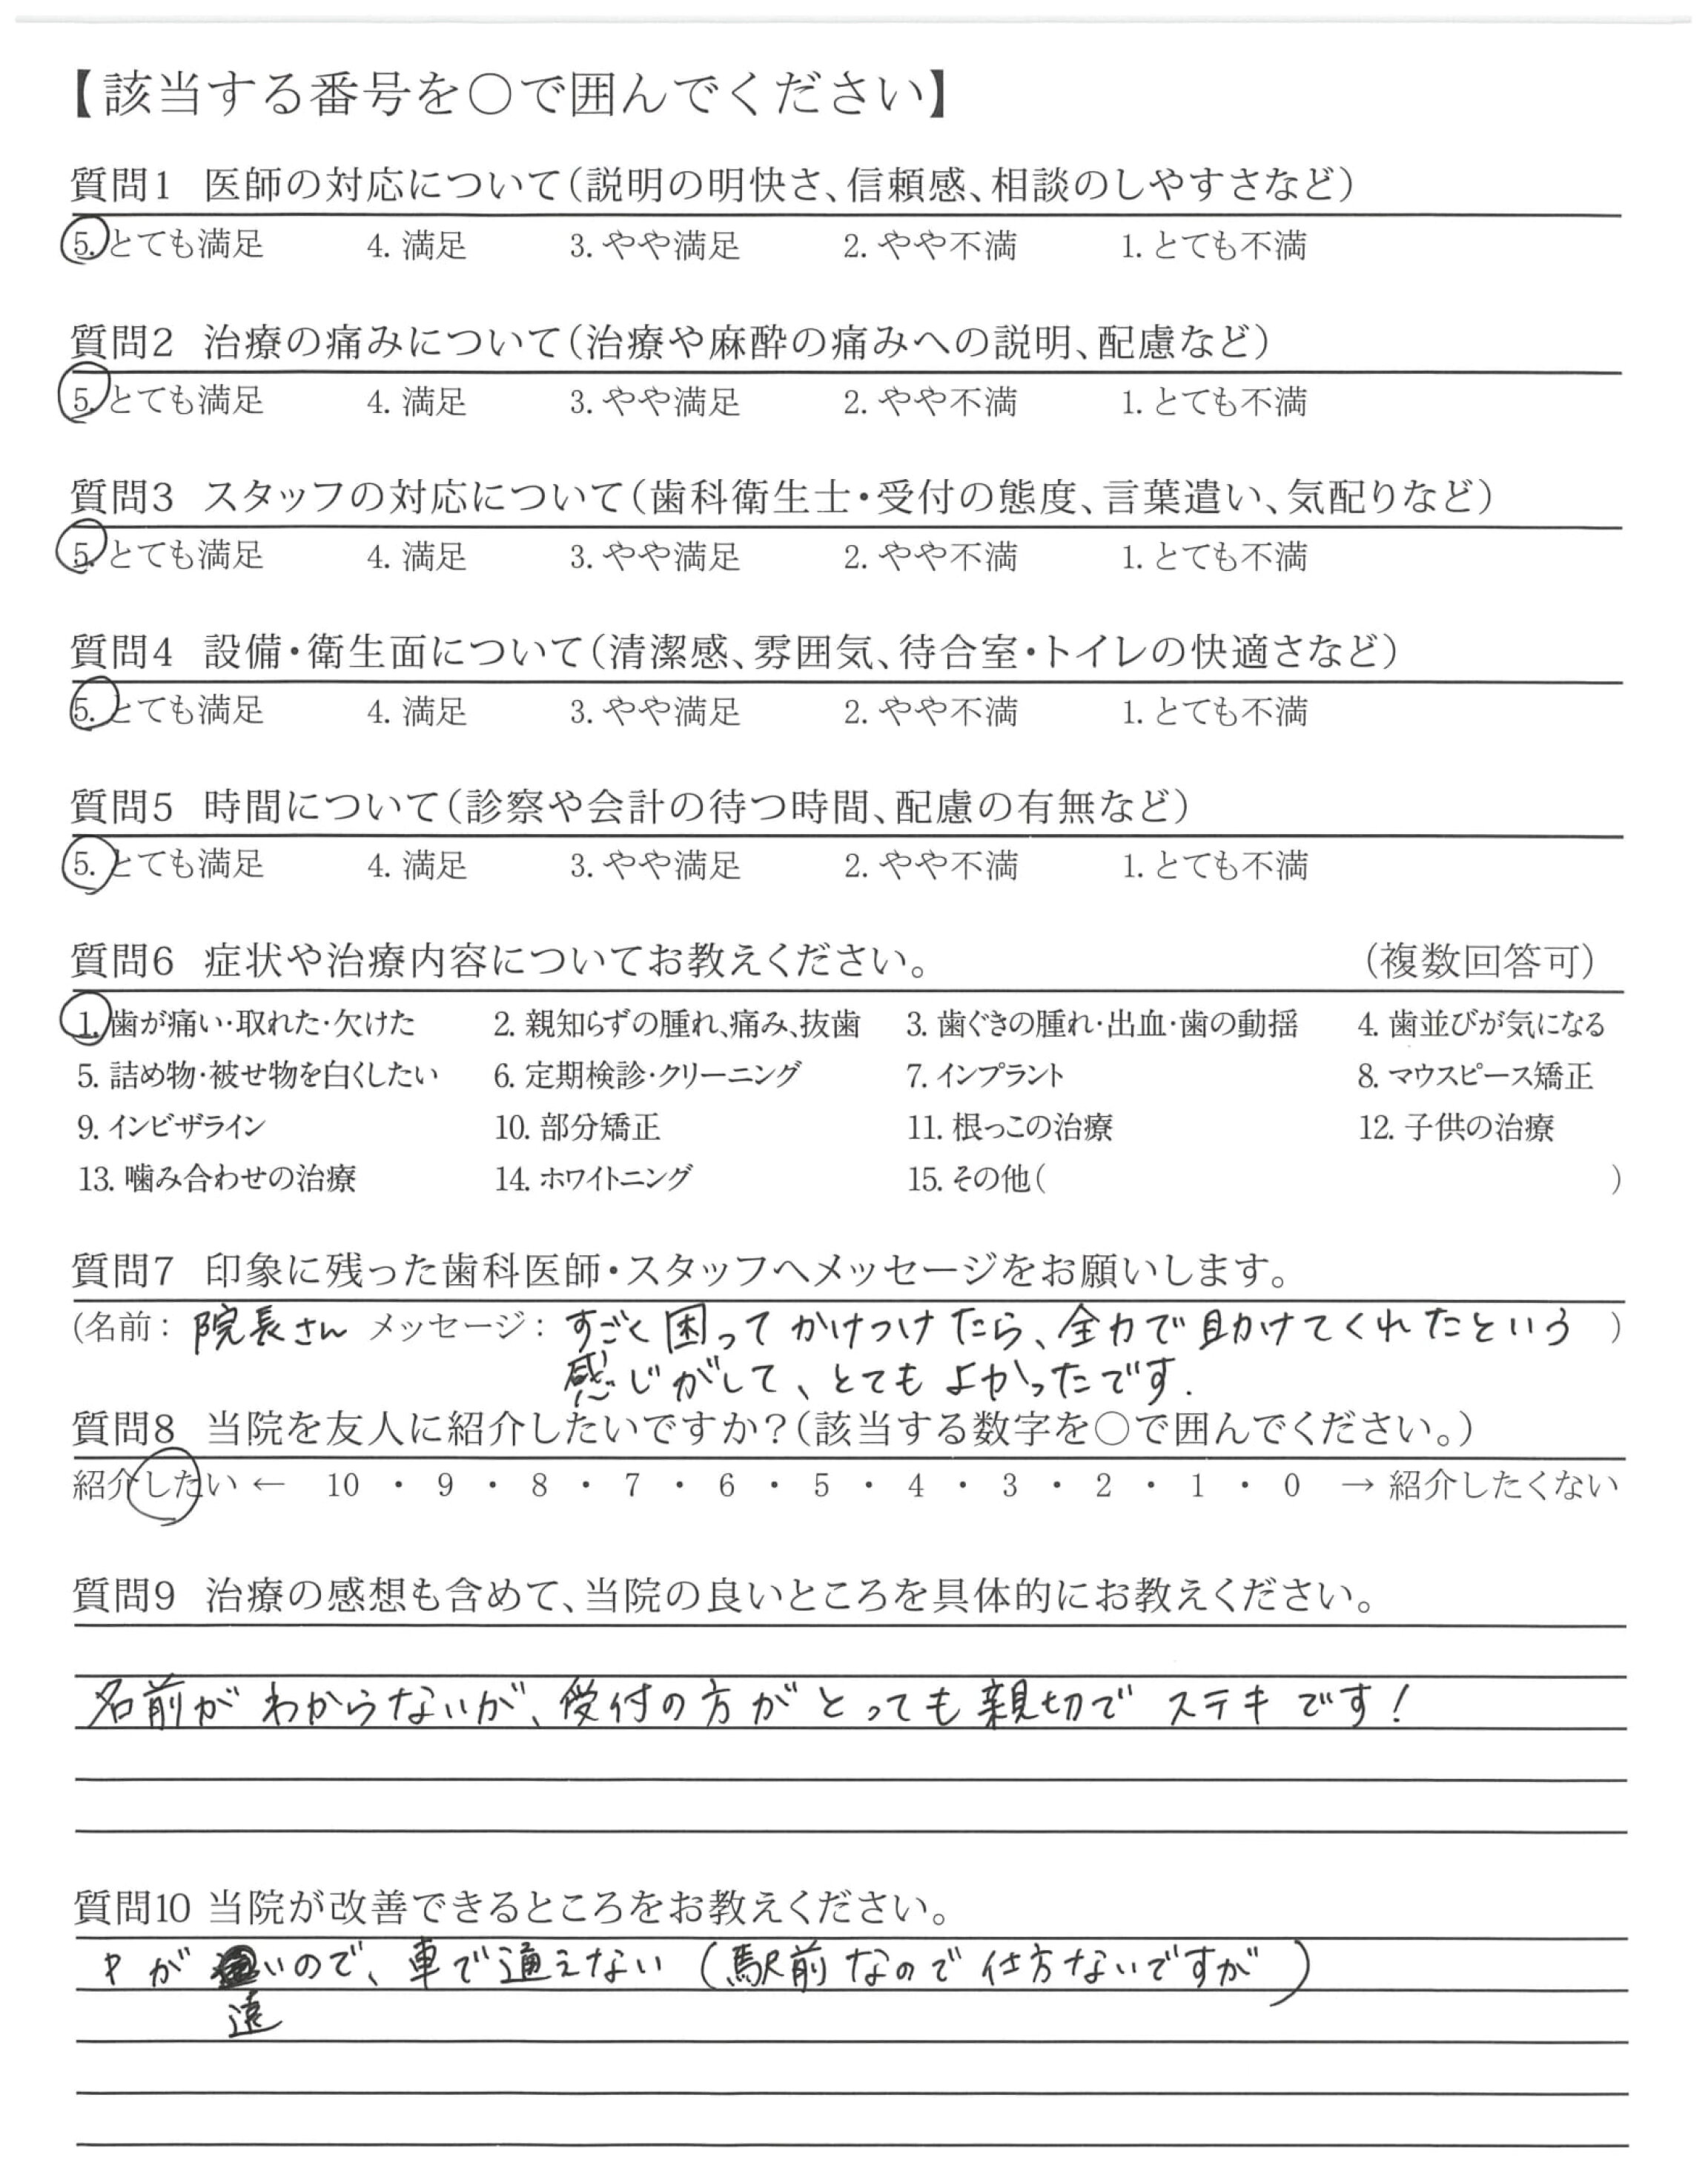 【該当する番号を○で囲んでください】
質問1 医師の対応について(説明の明快さ、信頼感、相談のしやすさなど)
5. とても満足 4. 満足 3. やや満足 2. やや不満 1. とても不満
質問2 治療の痛みについて(治療や麻酔の痛みへの説明、配慮など)
5. とても満足 4. 満足 3. やや満足 2. やや不満 1. とても不満
質問3 スタッフの対応について(歯科衛生士・受付の態度、言葉遣い、気配りなど)
5. とても満足 4. 満足 3. やや満足 2. やや不満 1. とても不満
質問4 設備・衛生面について(清潔感、雰囲気、待合室・トイレの快適さなど)
5. とても満足 4. 満足 3. やや満足 2. やや不満 1. とても不満
質問5 時間について(診察や会計の待つ時間、配慮の有無など)
5. とても満足 4. 満足 3. やや満足 2. やや不満 1. とても不満
質問6 症状や治療内容についてお教えください。 (複数回答可)
1. 歯が痛い・取れた・欠けた 2. 親知らずの腫れ、痛み、抜歯 3. 歯ぐきの腫れ・出血・歯の動揺 4. 歯並びが気になる
5. 詰め物・被せ物を白くしたい 6. 定期検診・クリーニング 7. インプラント 8. マウスピース矯正
9. インビザライン 10. 部分矯正 11. 根っこの治療 12. 子供の治療
13. 噛み合わせの治療 14. ホワイトニング 15. その他( )
質問7 印象に残った歯科医師・スタッフへメッセージをお願いします。
(名前: 院長さん メッセージ: すごく困ってかけつけたら、全力で助けてくれたという )
感じがして、とてもよかったです.
質問8 当院を友人に紹介したいですか?(該当する数字を○で囲んでください。)
紹介したい ← 10 ・ 9 ・ 8 ・ 7 ・ 6 ・ 5 ・ 4 ・ 3 ・ 2 ・ 1 ・ 0 → 紹介したくない
質問9 治療の感想も含めて、当院の良いところを具体的にお教えください。
名前がわからないが、受付の方がとっても親切でステキです!
質問10 当院が改善できるところをお教えください。
Pが いので、車で通えない(駅前なので仕方ないですが)
遠